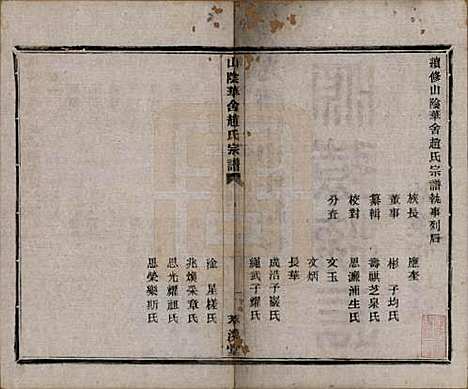 續修山陰華舍趙氏宗譜執事列后
族長　應奎
董事　彬　子均氏
纂輯　壽祺芝泉氏
校對　思瀛浦生氏
分查　文玉
文炳
長華
成沼子巖氏
繩武子耀氏
山陰華舍趙氏宗譜
萃渙堂
淦　星槎氏
兆煥采章氏
思光耀祖氏
思榮樂斯氏